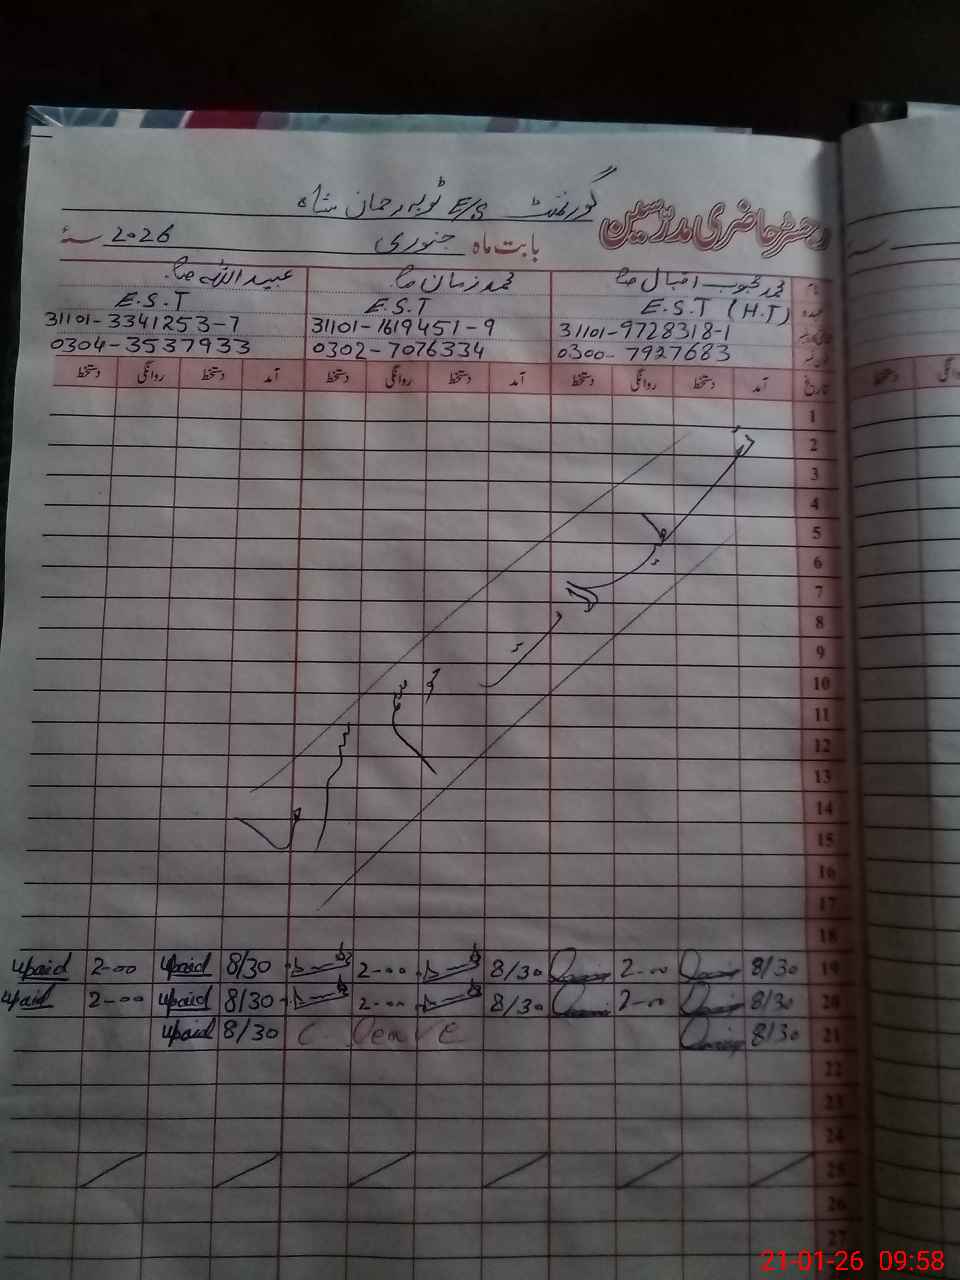 گورنمنٹ E/S ٹوبہ رحمان شاہ
رجسٹر حاضری مدرسین بابت ماہ جنوری 2026 سنہ
نام محمد محبوب اقبال صاحب محمد زمان صاحب عبید اللہ صاحب
عہدہ E.S.T (H.T) E.S.T E.S.T
31101-9728318-1 31101-1619451-9 31101-3341253-7
0300-7927683 0302-7076334 0304-3537933
تاریخ آمد دستخط روانگی دستخط آمد دستخط روانگی دستخط آمد دستخط روانگی دستخط
1
2
3
4
5
6
7
8
9
10
11
12
13
14
15
16
17
18
19 8/30 2-00 8/30 2-00 8/30 2-00
20 8/30 2-00 8/30 2-00 8/30 2-00
21 8/30 C. Leave 8/30
22
23
24
25
26
27
21-01-26 09:58